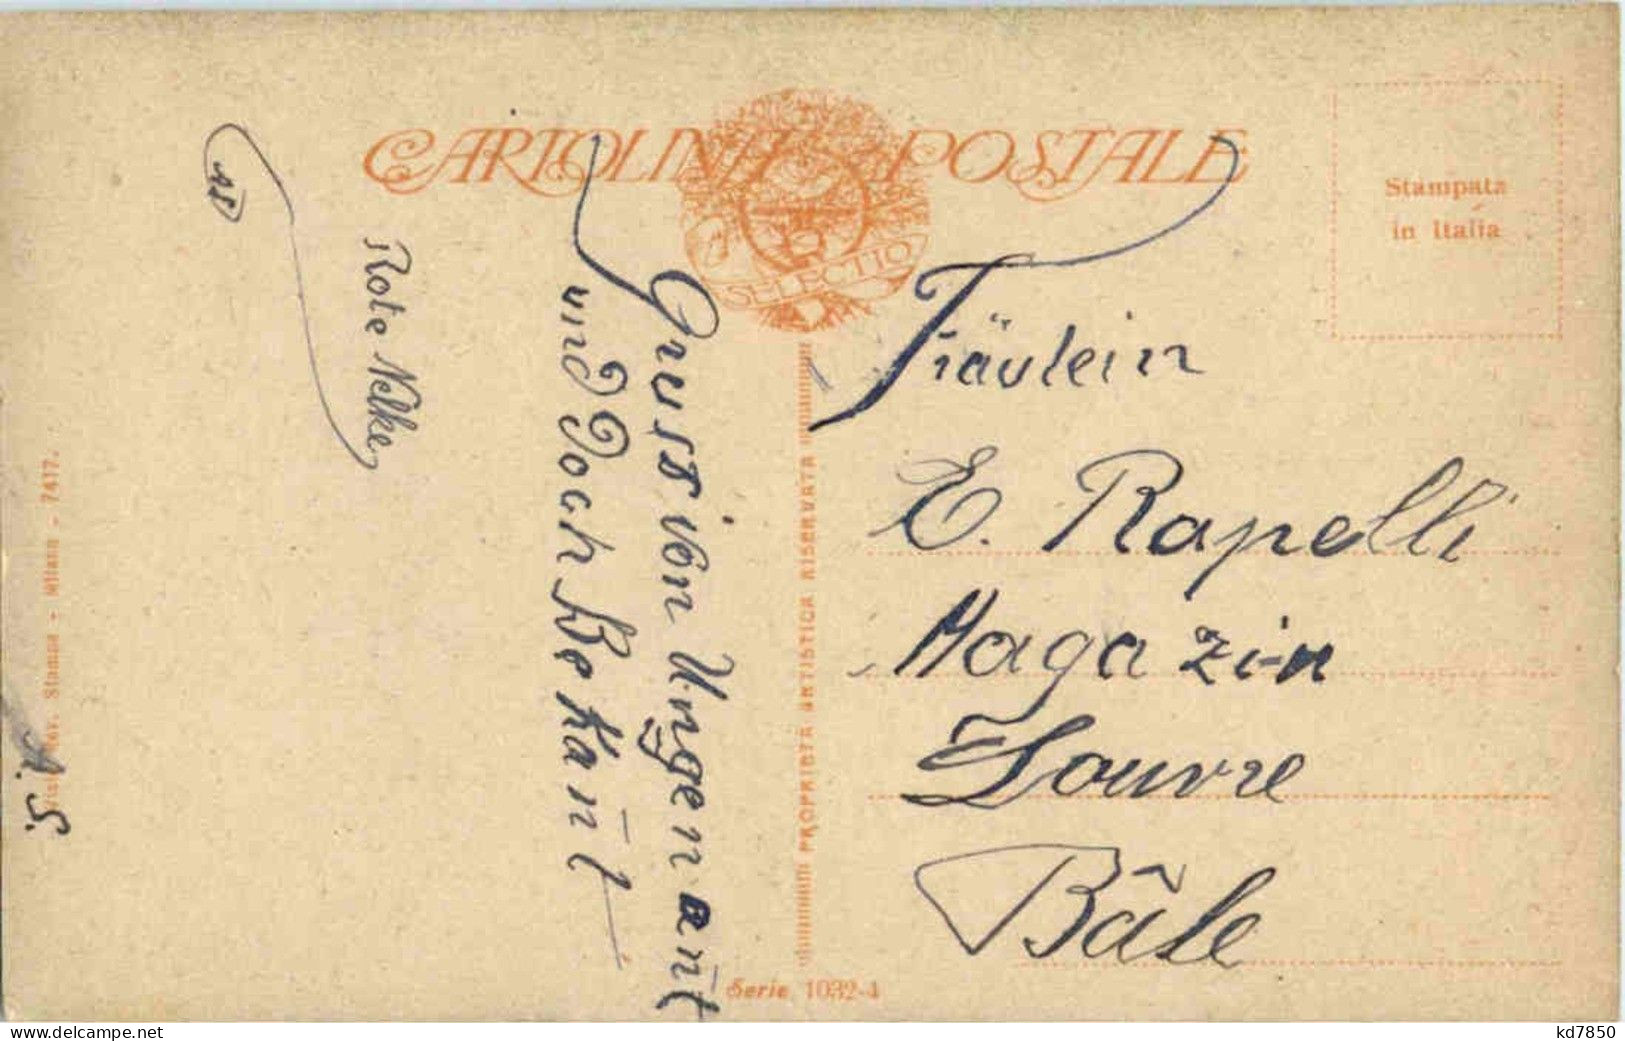 CARTOLINA POSTALE
SELECTIO
Stampata
in Italia
Rote Nelke
Gruss von Ungenan̄t
und Doch BeKan̄t
Fräulein
E. Rapelli
Magazin
Louvre
Bâle
PROPRIETÀ ARTISTICA RISERVATA
Rev. Stampa - Milano - 7417.
A. S.
Serie 1032-4
www.delcampe.net
kd7850